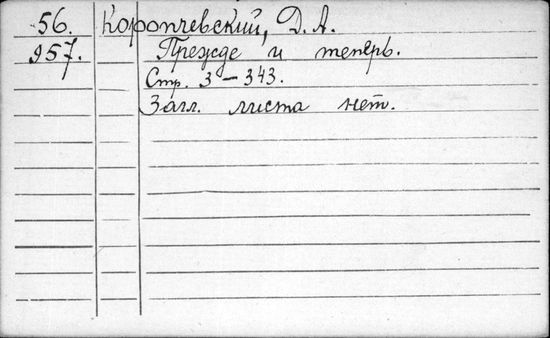 56. Коропчевский, Д. А.
957. Прежде и теперь.
Стр. 3 – 343.
Загл. листа нет.